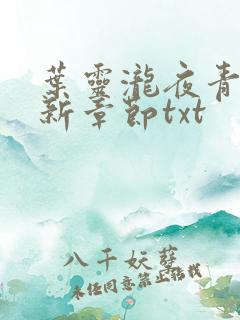 葉靈瀧夜青
新章節txt
八千妖孽
未經同意禁止轉載